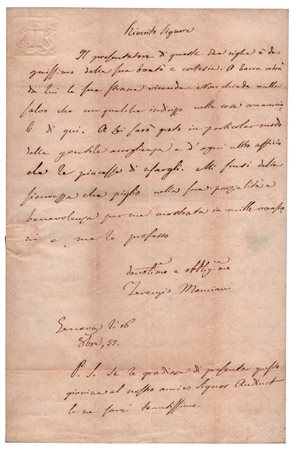 Riverito Signore
Il presentatore di queste due righe è de-
gnissimo della sua bontà e cortesia. A bocca udrà
da lui le sue strane vicende. Non chiede nulla
salvo che un qualche indirizzo nelle cose
di qui. A Lei sarò grato in particolar modo
della gentile accoglienza e d'ogni altro ufficio
che le piacesse di usargli. Mi scusi della
sicurezza che piglio nella sua parzialità e
benevolenza per me mostrata in mille occasio
ni e me le professo
devotmo e obbligmo
Terenzio Mamiani
Genova li 16
8bre, 55.
P. S. se le gradisse di presentar questo
giovine al nostro amico Signor Audinot
le ne sarei tenutissimo.